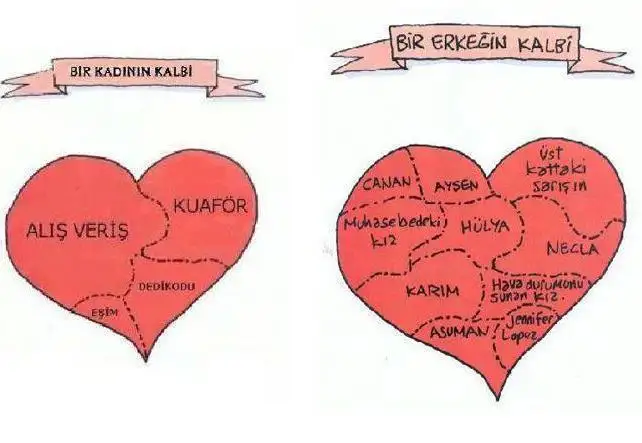 BİR KADININ KALBİ
ALIŞ VERİŞ
KUAFÖR
DEDİKODU
EŞİM
BİR ERKEĞİN KALBİ
CANAN
AYŞEN
Üst
kattaki
sarışın
Muhasebedeki
kız
HÜLYA
NECLA
KARIM
Hava durumunu
sunan kız.
ASUMAN
Jennifer
Lopez